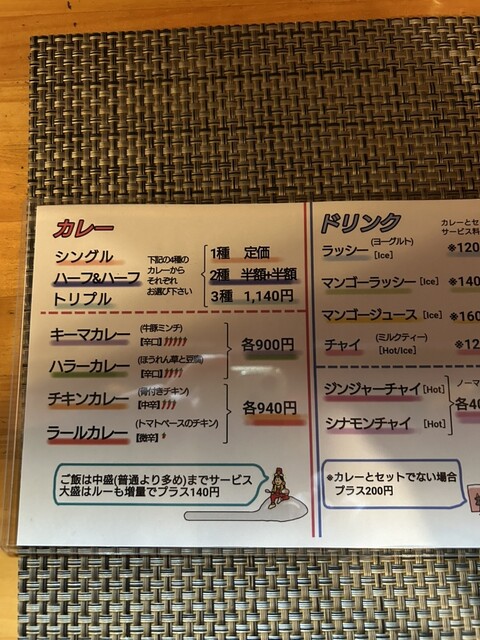 カレー
シングル
ハーフ&ハーフ
トリプル
下記の4種の
カレーから
それぞれ
お選び下さい
1種 定価
2種 半額+半額
3種 1,140円
キーマカレー (牛豚ミンチ)
[辛口]
ハラーカレー (ほうれん草と豆腐)
[辛口]
各900円
チキンカレー (骨付きチキン)
[中辛]
ラールカレー (トマトベースのチキン)
[微辛]
各940円
ご飯は中盛(普通より多め)までサービス
大盛はルーも増量でプラス140円
ドリンク
カレーとセ
サービス料
ラッシー (ヨーグルト)
[Ice]
※120
マンゴーラッシー [Ice] ※140
マンゴージュース [Ice] ※160
チャイ (ミルクティー)
[Hot/Ice]
※12
ジンジャーチャイ [Hot]
シナモンチャイ [Hot]
ノーマ
各40
※カレーとセットでない場合
プラス200円